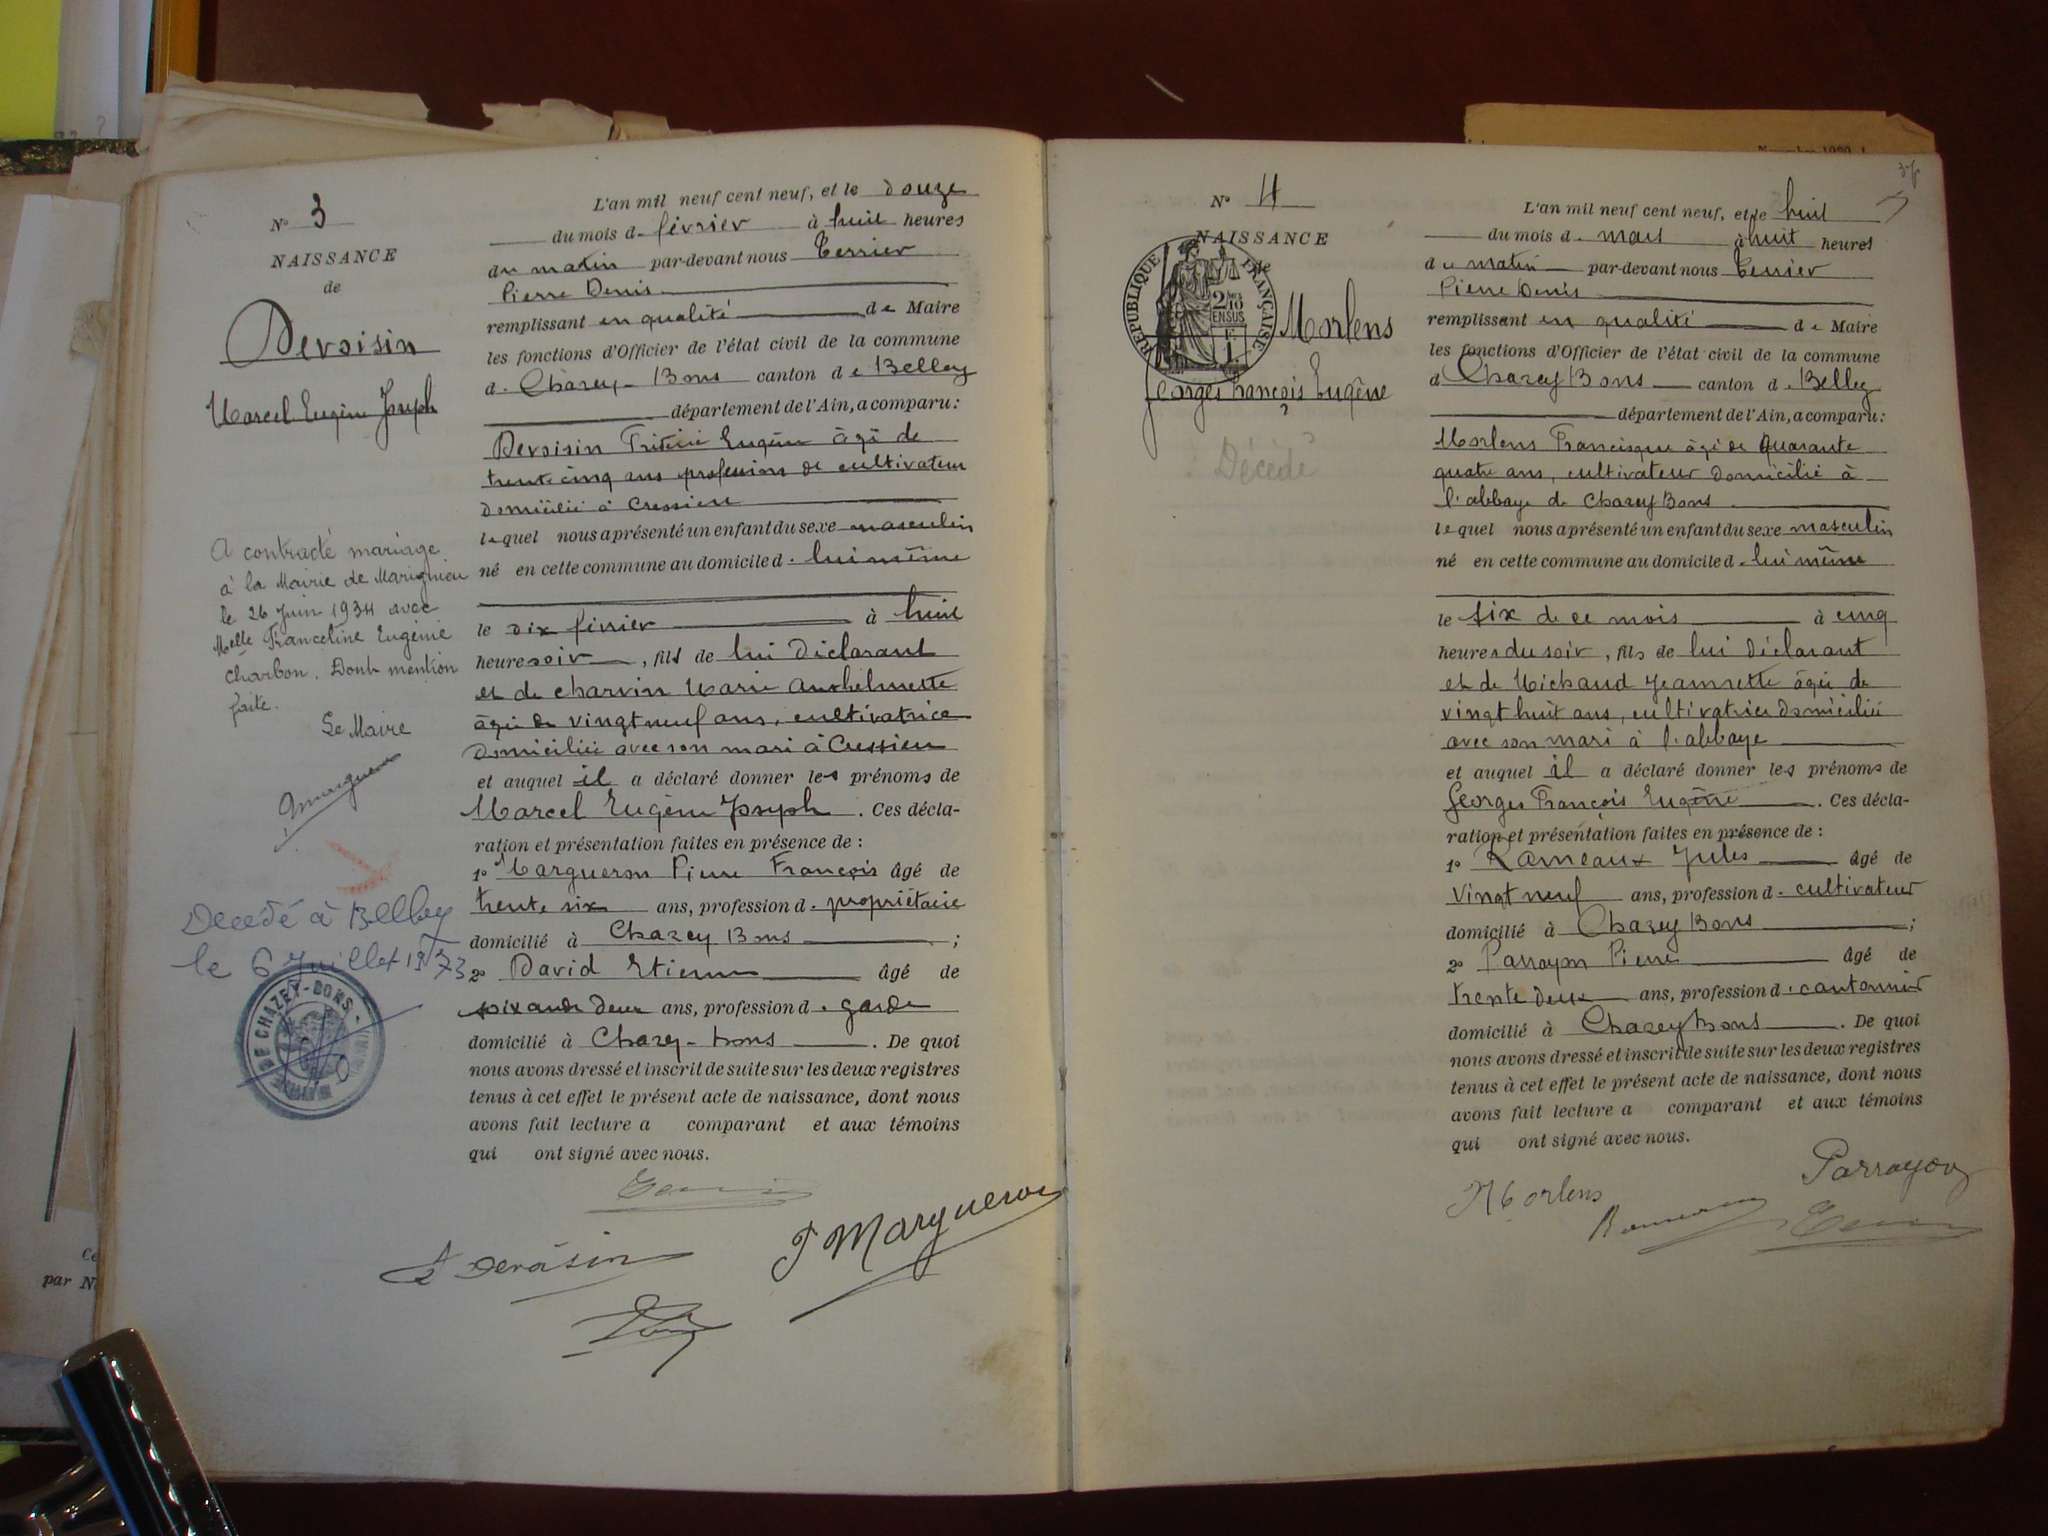 N° 3
NAISSANCE
de
Devoisin
Marcel Eugène Joseph
A contracté mariage
à la Mairie de Marignieu
le 26 Juin 1934 avec
Melle Franceline Eugénie
Charbon. Dont mention
faite.
Le Maire
Décédé à Belley
le 6 Juillet 1973
MAIRIE DE CHAZEY-BONS
L'an mil neuf cent neuf, et le douze
du mois de février à huit heures
du matin par-devant nous Terrier
Pierre Denis
remplissant en qualité de Maire
les fonctions d'Officier de l'état civil de la commune
d. Chazey-Bons canton de Belley
département de l'Ain, a comparu:
Devoisin Eugène âgé de
trente cinq ans profession de cultivateur
domicilié à Cressieu
lequel nous a présenté un enfant du sexe masculin
né en cette commune au domicile d. lui même
le dix février à huit
heures soir, fils de lui déclarant
et de Charvin Marie Anthelmette
âgée de vingt neuf ans, cultivatrice
domiciliée avec son mari à Cressieu
et auquel il a déclaré donner les prénoms de
Marcel Eugène Joseph. Ces décla-
ration et présentation faites en présence de :
1° Margueron Pierre François âgé de
trente six ans, profession d. propriétaire
domicilié à Chazey Bons ;
2° David Etienne âgé de
soixante deux ans, profession d. garde
domicilié à Chazey-bons. De quoi
nous avons dressé et inscrit de suite sur les deux registres
tenus à cet effet le présent acte de naissance, dont nous
avons fait lecture a comparant et aux témoins
qui ont signé avec nous.
Devoisin
P Margueron
N° 4
NAISSANCE
de
RÉPUBLIQUE FRANÇAISE
2/10 EN SUS
Morlens
Georges François Eugène
Décédé
L'an mil neuf cent neuf, et le huit
du mois d. mars à huit heures
du matin par-devant nous Terrier
Pierre Denis
remplissant en qualité de Maire
les fonctions d'Officier de l'état civil de la commune
d Chazey Bons canton d. Belley
département de l'Ain, a comparu:
Morlens Francisque âgé de quarante
quatre ans, cultivateur domicilié à
l'abbaye de Chazey Bons
lequel nous a présenté un enfant du sexe masculin
né en cette commune au domicile d. lui même
le six de ce mois à cinq
heures du soir, fils de lui déclarant
et de Michaud Jeannette âgée de
vingt huit ans, cultivatrice domiciliée
avec son mari à l'abbaye
et auquel il a déclaré donner les prénoms de
Georges François Eugène. Ces décla-
ration et présentation faites en présence de :
1° Rameaux Jules âgé de
vingt neuf ans, profession d. cultivateur
domicilié à Chazey Bons ;
2° Parrayon Pierre âgé de
trente deux ans, profession d. cantonnier
domicilié à Chazey bons. De quoi
nous avons dressé et inscrit de suite sur les deux registres
tenus à cet effet le présent acte de naissance, dont nous
avons fait lecture a comparant et aux témoins
qui ont signé avec nous.
Parrayon
Morlens
par N